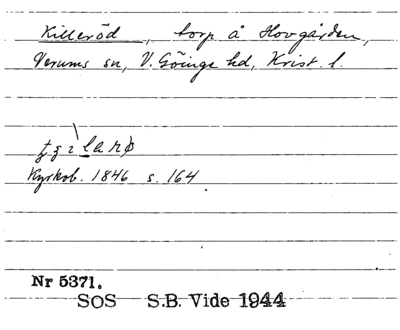 Killeröd, torp å Hovgården,
Verums sn, V. Göinge hd, Krist. l.
Kyrkob. 1846 s. 164
Nr 5371.
SOS S.B. Vide 1944